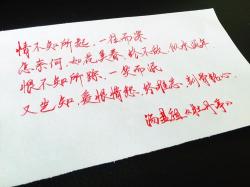 情不知所起，一往而深
怎奈何，如花美眷，终不敌，似水流年
恨不知所踪，一笑而泯
又岂知，爱恨情愁，终难忘，刻骨铭心
汤显祖《牡丹亭》